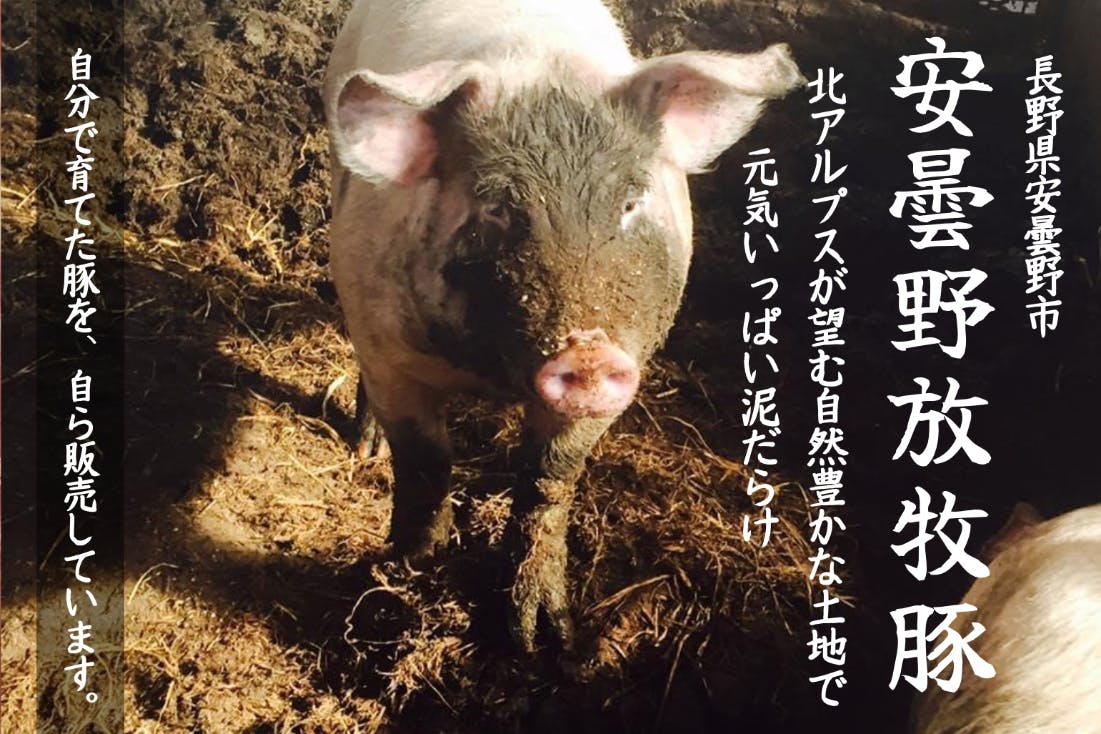 長野県安曇野市
安曇野放牧豚
北アルプスが望む自然豊かな土地で
元気いっぱい泥だらけ
自分で育てた豚を、自ら販売しています。